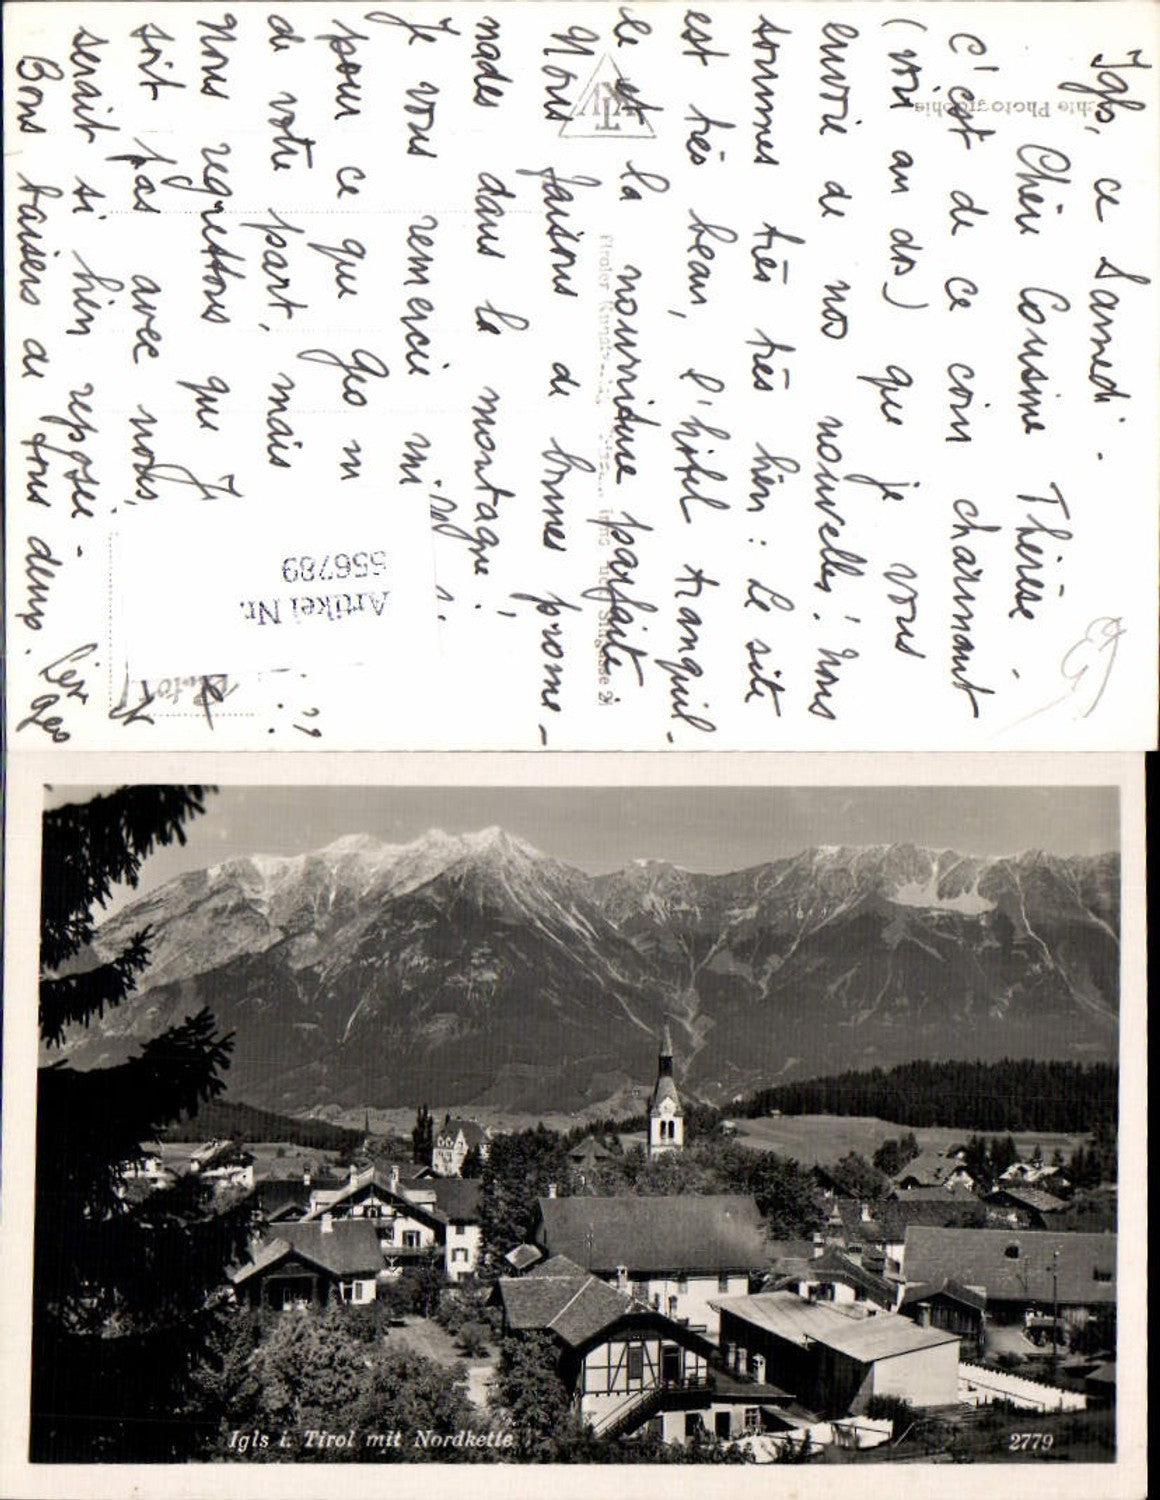 Igls, ce Samedi.
Chère Cousine Thérèse -
C'est de ce coin charmant
(voir au dos) que je vous
envoie de nos nouvelles! Nous
sommes très très bien: Le site
est très beau, l'hôtel tranquil-
le et la nourriture parfaite
Nous faisons de bonnes prome-
nades dans la montagne!
Je vous remercie
pour ce que Geo m
de votre part, mais
Nous regrettons que J
soit pas avec nous,
serait si bien reposée -
Bons baisers de tous deux.
Geo
Echte Photographie
Artikel Nr.
556789
Igls i. Tirol mit Nordkette
2779